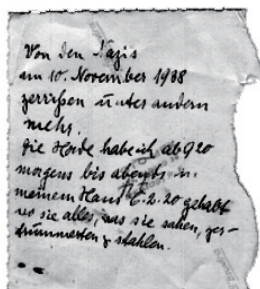 Von den Nazis
am 10. November 1938
zerrißen unter andern
mehr.
Die Horde habe ich ab 9 20
morgens bis abends in
meinem Haus C. 2. 20 gehabt
wo sie alles, was sie sahen, zer-
trümmerten & stahlen.